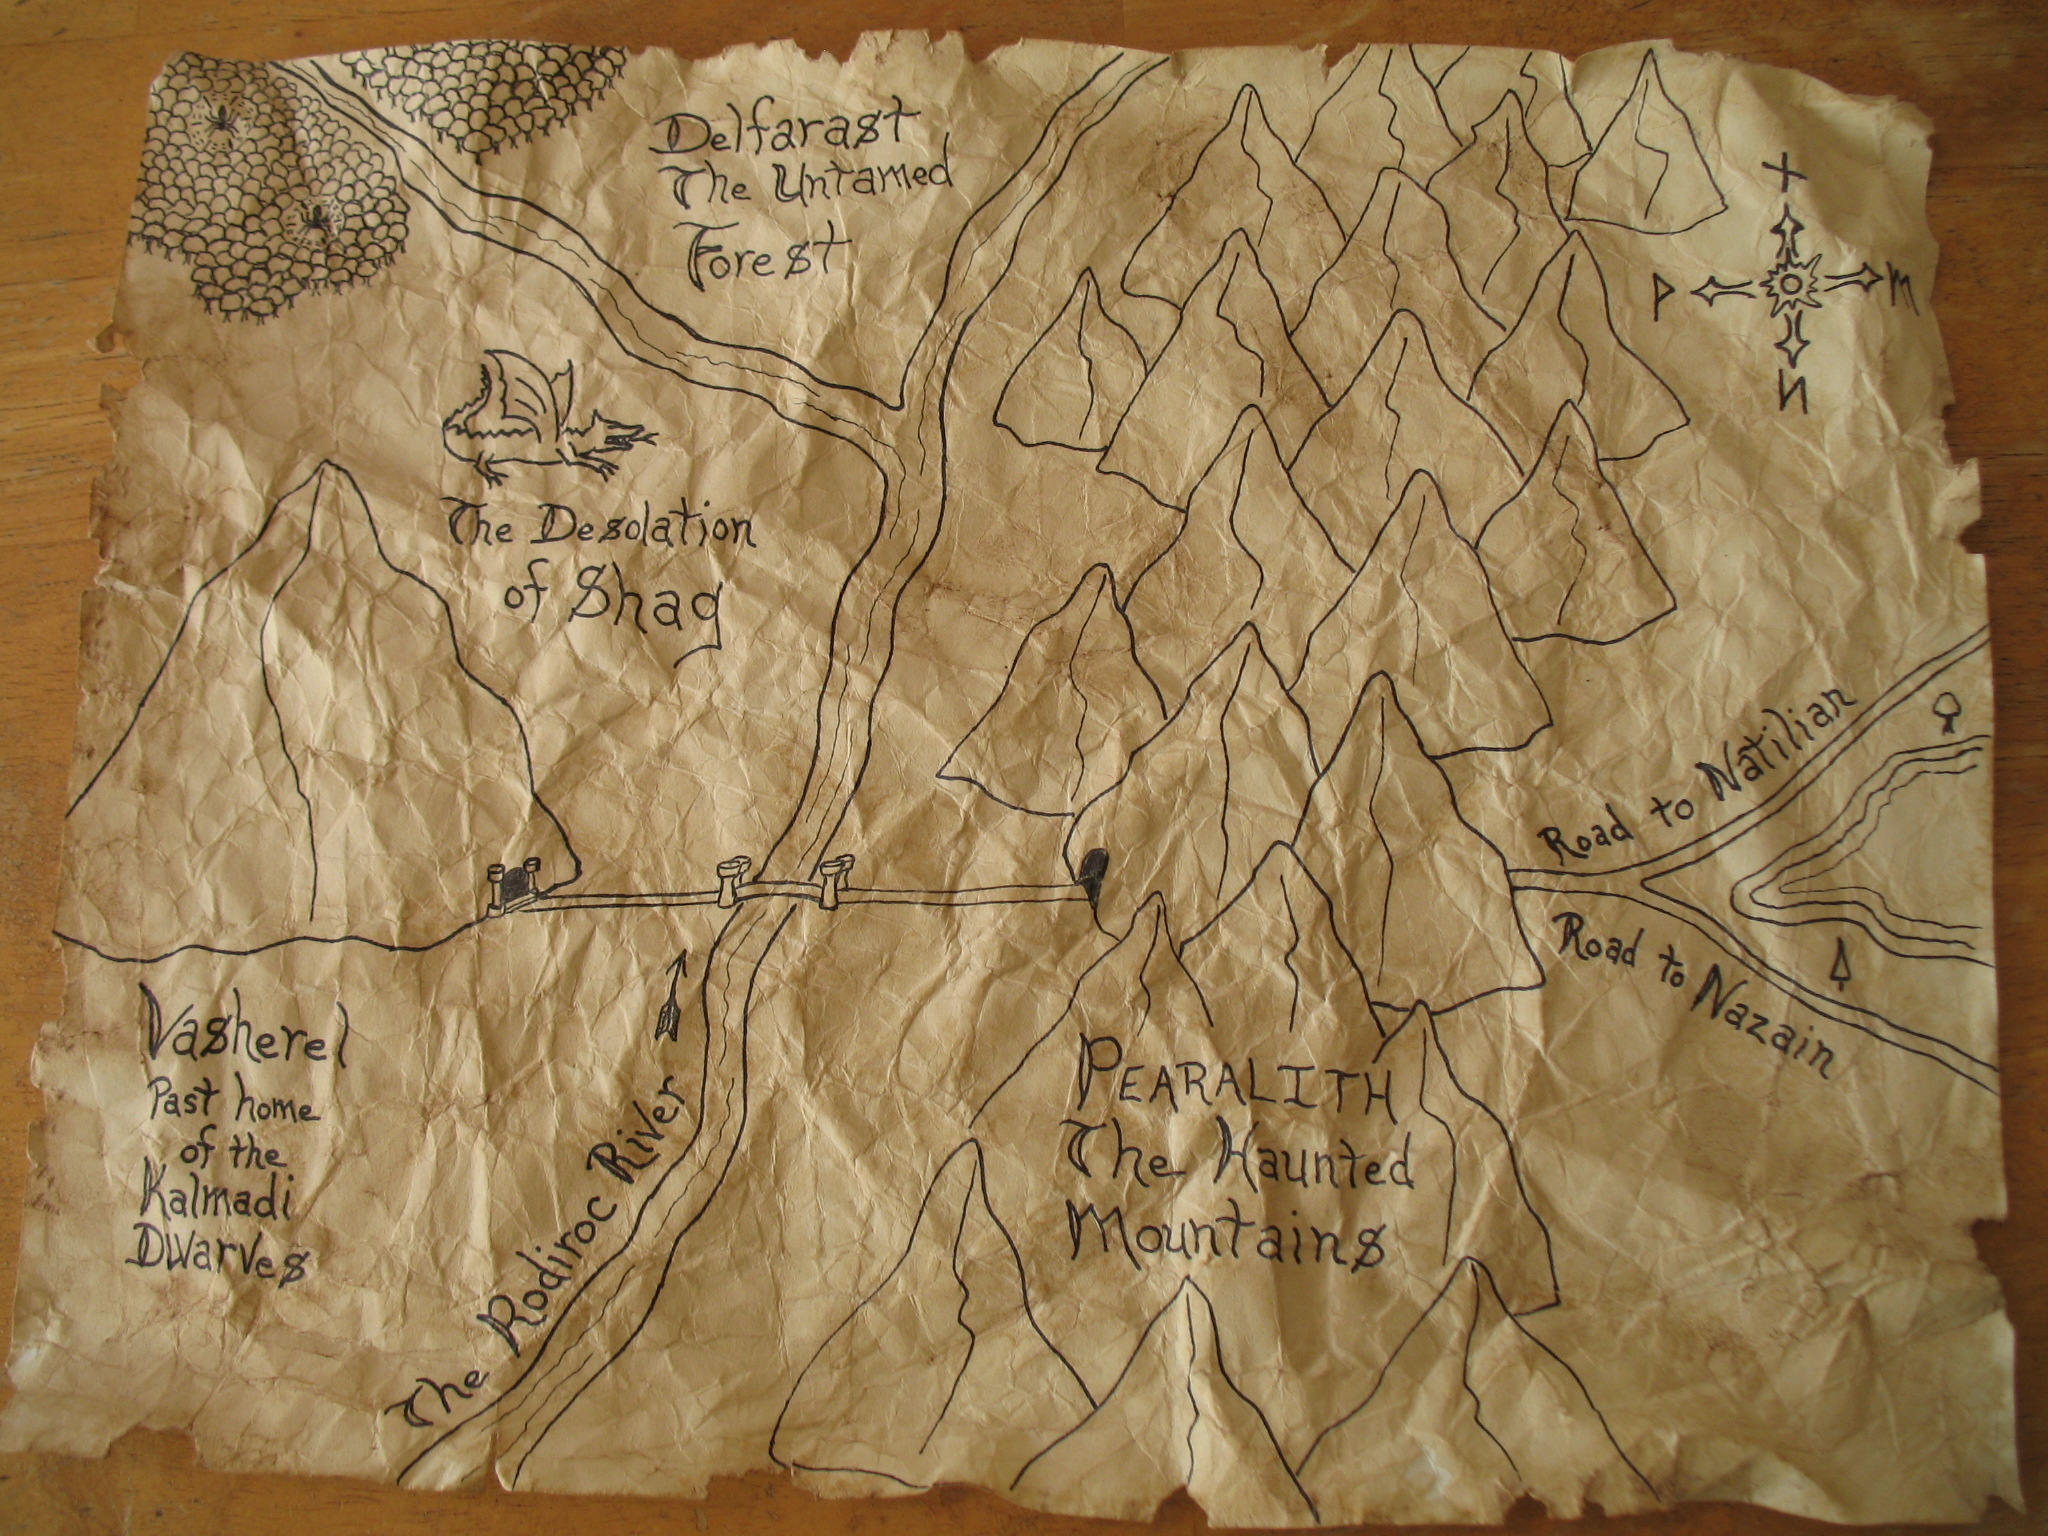 Delfarast
The Untamed
Forest
The Desolation
of Shag
Road to Natilian
Road to Nazain
Vasherel
Past home
of the
Kalmadi
Dwarves
The Rodiroc River
PEARALITH
The Haunted
Mountains